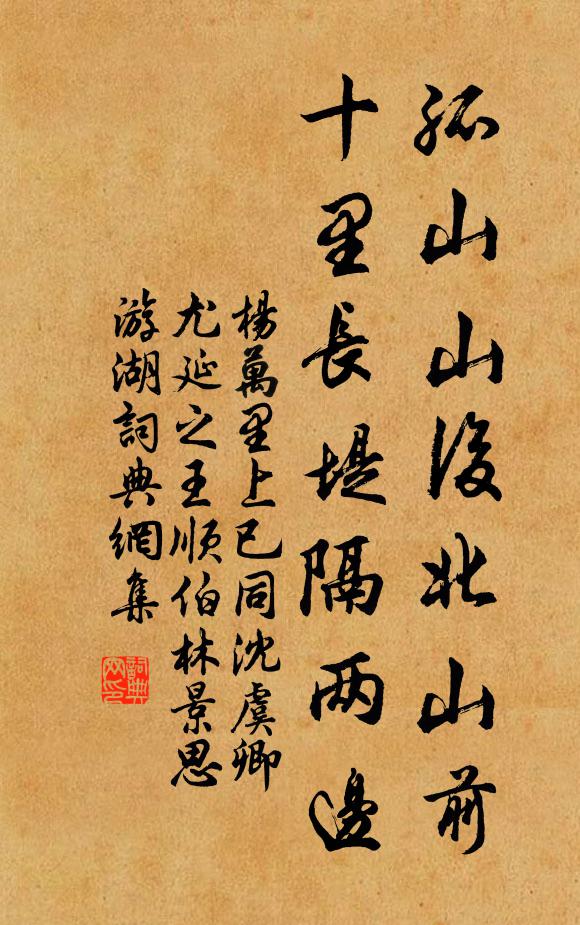 孤山山後北山前
十里長堤隔兩邊
楊萬里上巳同沈虞卿
尤延之王順伯林景思
游湖詞典網集
詞典網印